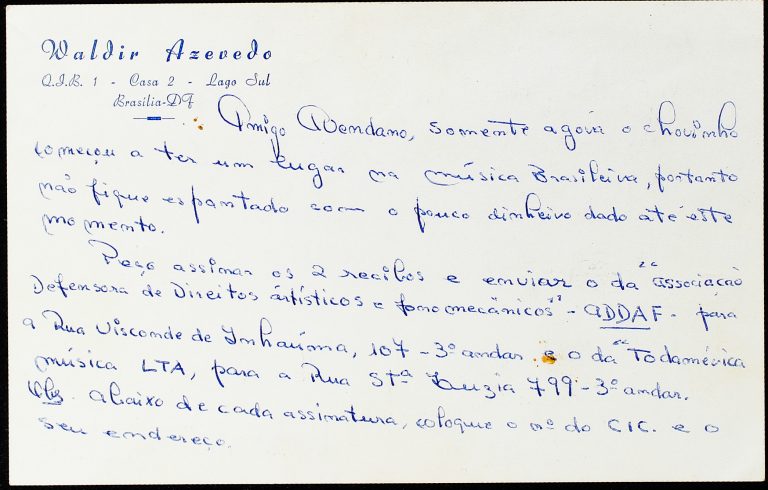 Waldir Azevedo
Q.I.B. 1 - Casa 2 - Lago Sul
Brasília-DF
Amigo Avendano, somente agora o chorinho
começou a ter um lugar na música Brasileira, portanto
não fique espantado com o pouco dinheiro dado até este
momento.
Peço assinar os 2 recibos e enviar o da "Associação
Defensora de Direitos artísticos e fonomecânicos" - ADDAF - para
a Rua Visconde de Inhaúma, 107 - 3º andar e o da "Todamérica
música LTA, para a Rua Stª Luzia 799 - 3º andar.
Obs. abaixo de cada assinatura, coloque o nº do CIC. e o
seu endereço.